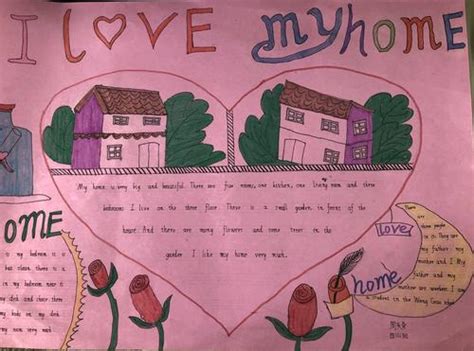 I LOVE my home
My home is very big and beautiful. There are five rooms, one kitchen, one living room and three
bedrooms I live on the three floor. There is a small garden in front of the
house. And there are many flowers and some trees in the
garden I like my home very much.
OME
is my bedroom is a
in my bedroom near it
my desk and chair there
my books on my desk
my room very much
There
are three
people
in it. They are
my father my
mother and I My
father and my
mother are workers. I am
a student in the
love
home